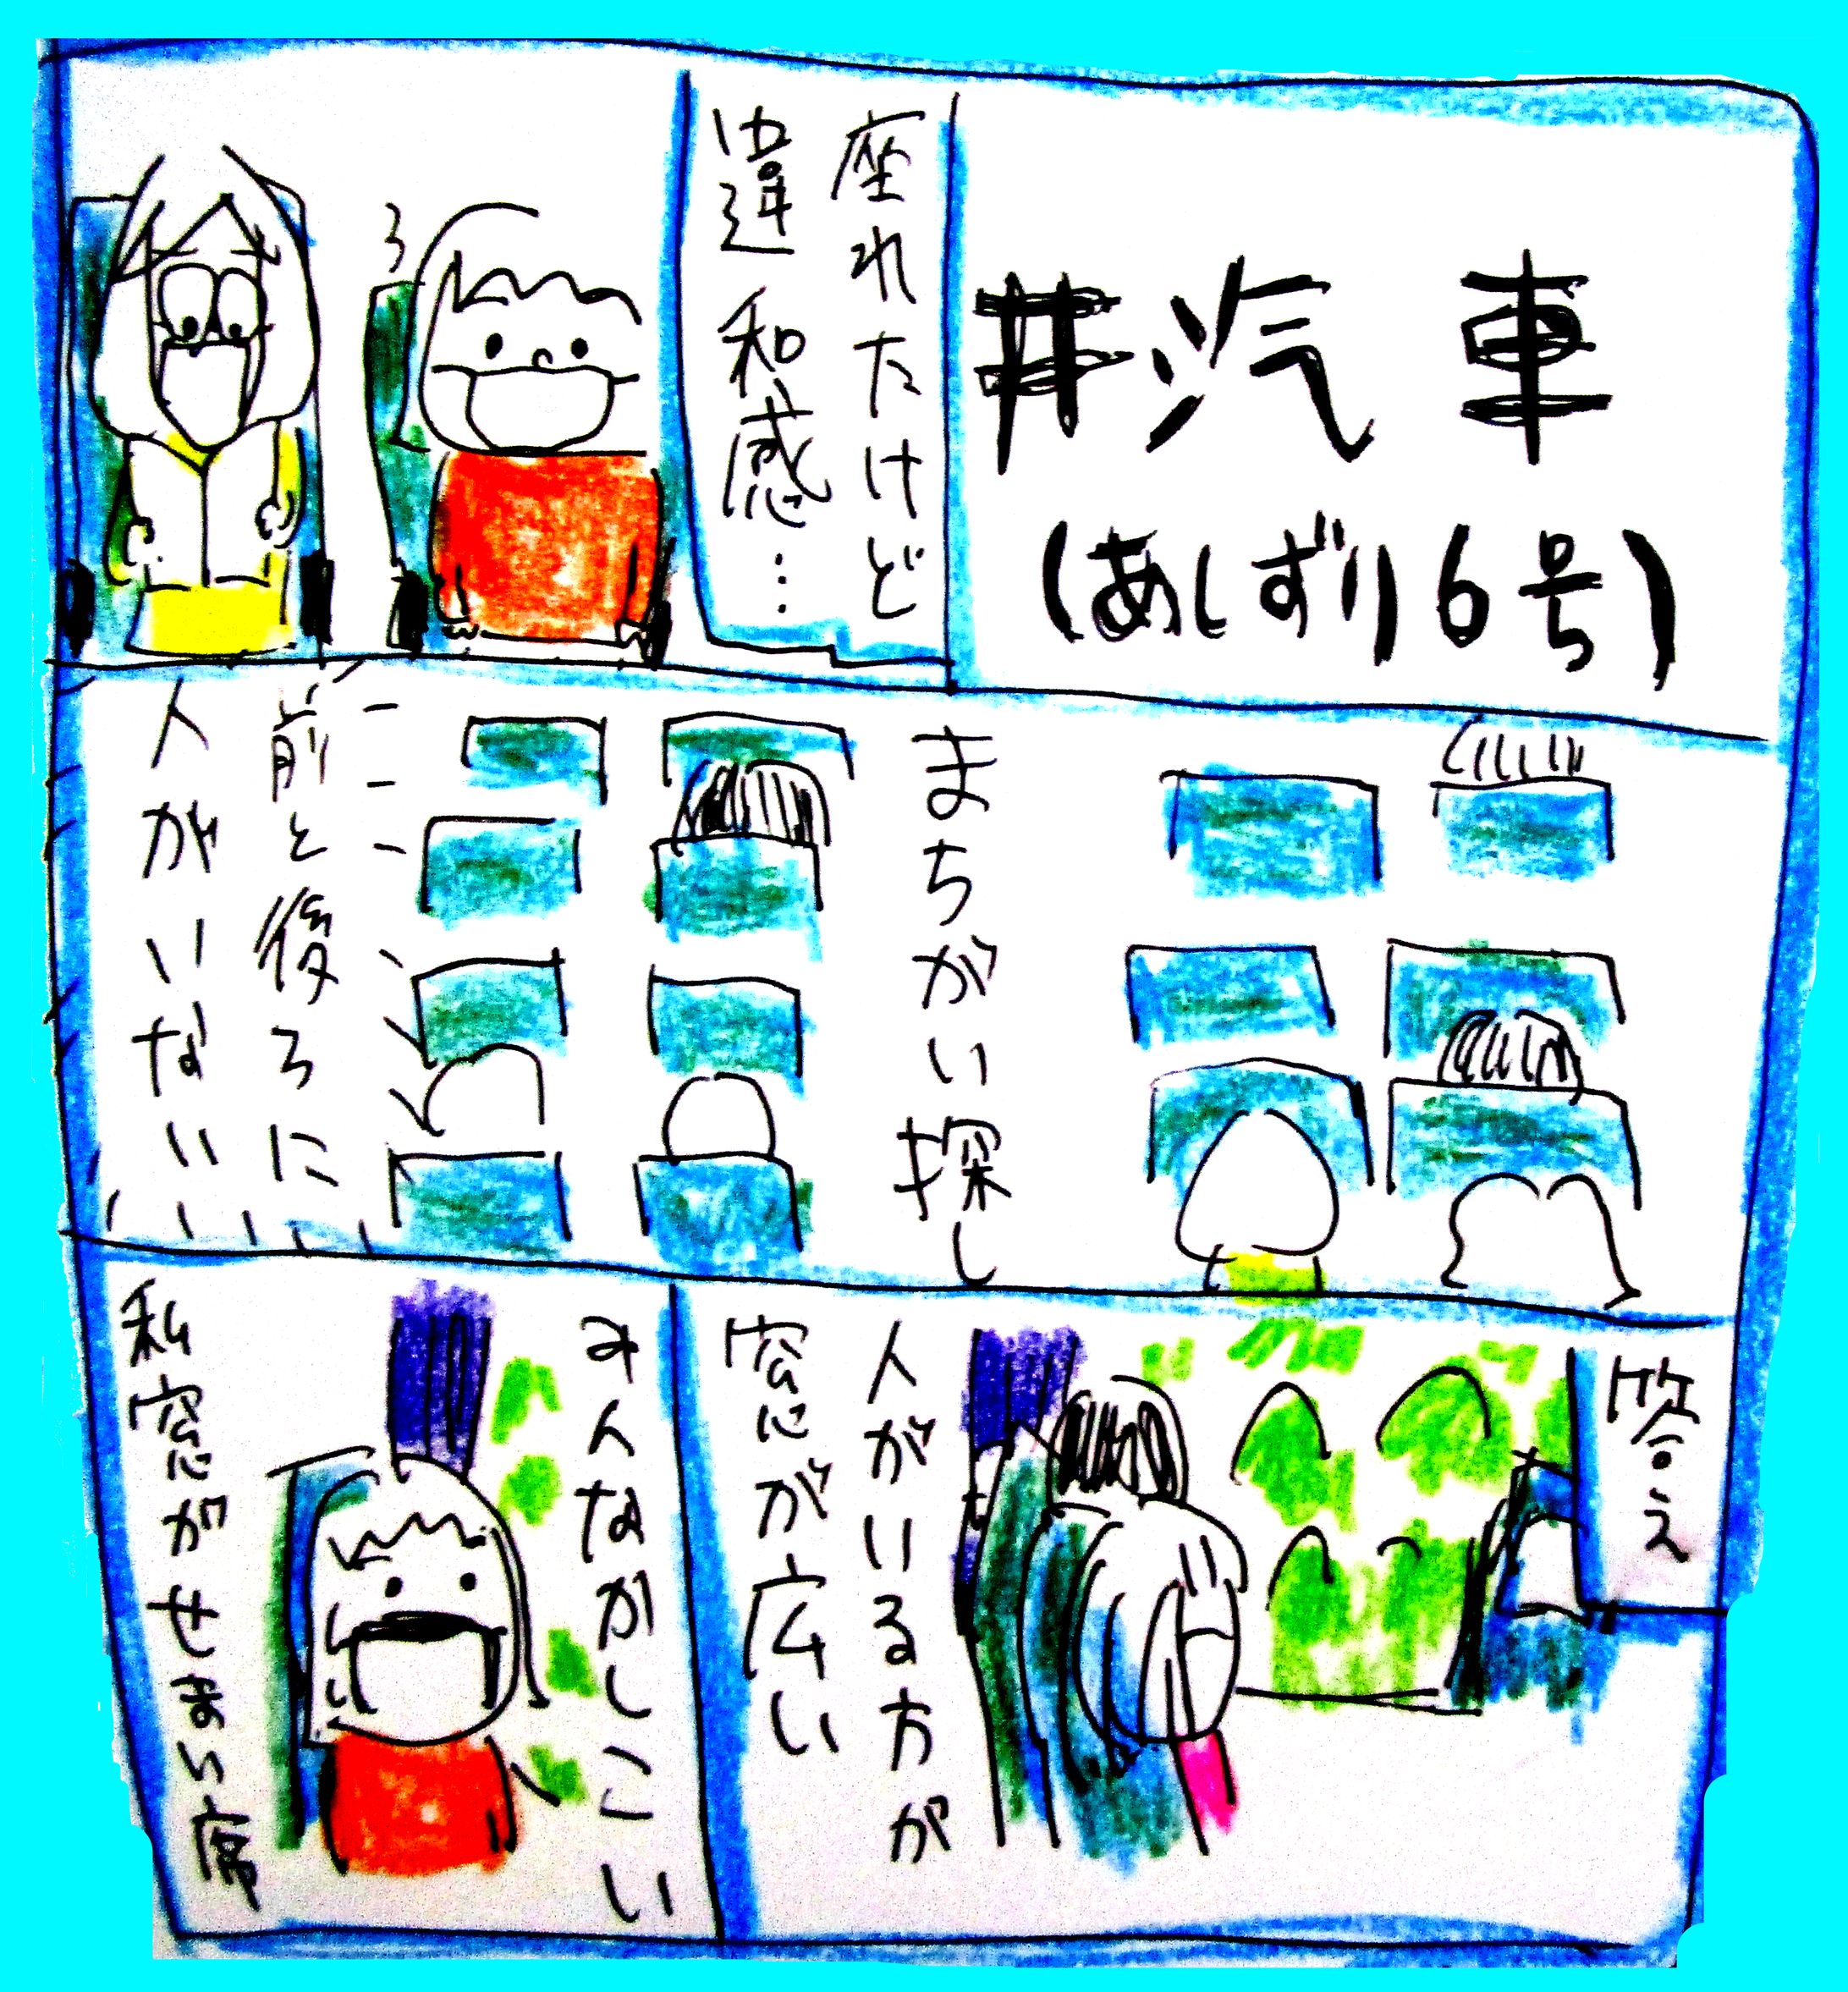 #汽車
(あしずり6号)
座れたけど
違和感…
まちがい探し
前と後ろに
人がいない
答え
人がいる方が
窓が広い
みんなかしこい
私窓がせまい席